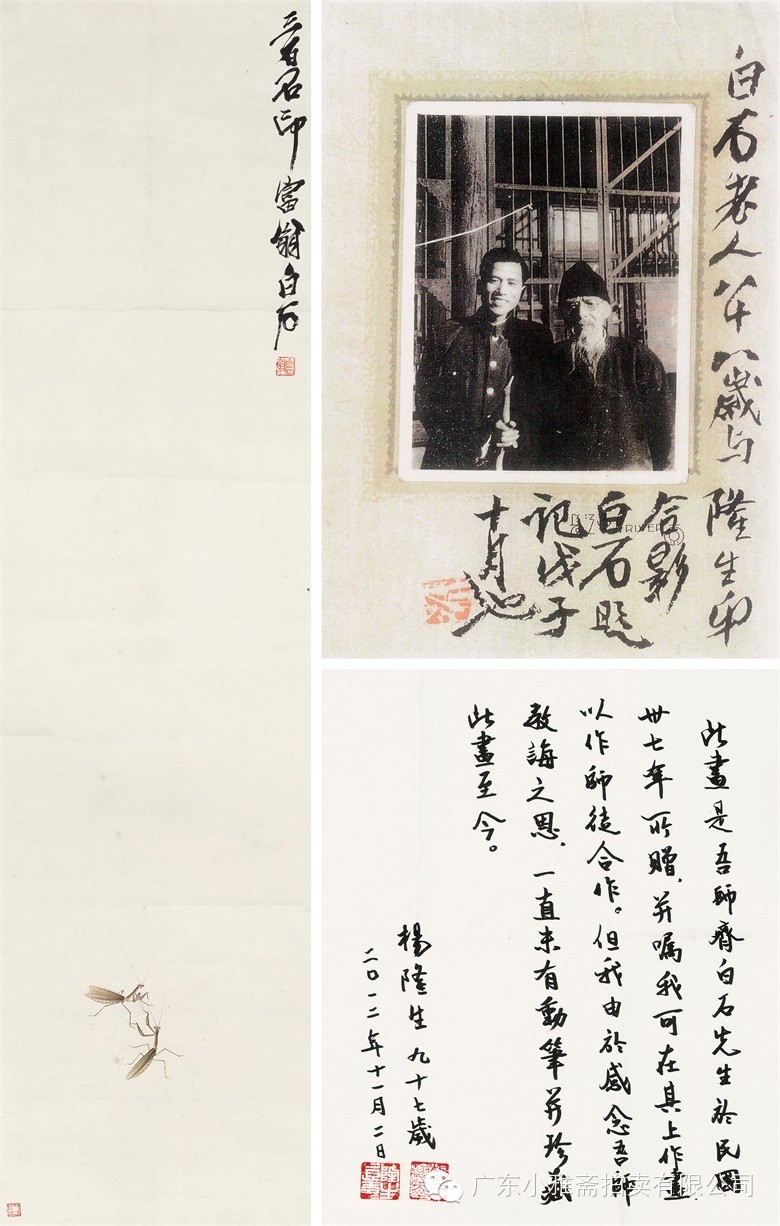 三百石印富翁白石
白石老人八十八歲与
隆生弟
合影
白石題
記戊子
十月
RIVER
此畫是吾師齊白石先生於民國
卅七年所贈，并囑我可在其上作畫
以作師徒合作。但我由於感念吾師
教誨之恩，一直未有動筆并珍藏
此畫至今。
楊隆生 九十七歲
二〇一二年十一月二日
广东小雅斋拍卖有限公司